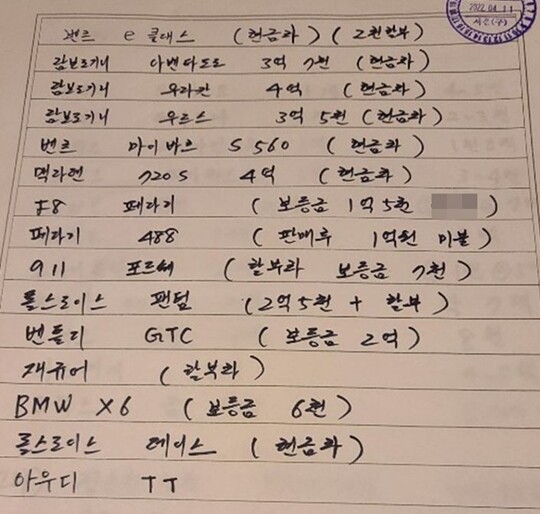 2022. 04. 11
벤츠 e 클래스 (현금차) (2천할부)
람보르기니 아벤타도르 3억 7천 (현금차)
람보르기니 우라칸 4억 (현금차)
람보르기니 우르스 3억 5천 (현금차)
벤츠 마이바흐 S 560 (현금차)
맥라렌 720S 4억 (현금차)
F8 페라리 (보증금 1억 5천
페라리 488 (판매후 1억원 미불)
911 포르쉐 (할부차 보증금 7천)
롤스로이스 팬텀 (2억 5천 + 할부)
벤틀리 GTC (보증금 2억)
재규어 (할부차)
BMW X6 (보증금 6천)
롤스로이스 레이스 (현금차)
아우디 TT